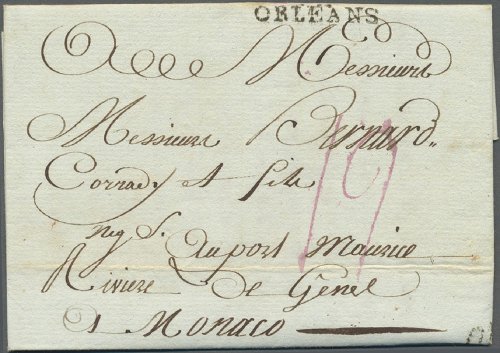 ORLEANS
A Messieurs
Messieurs Bernard
Corrady et fils
neg S. au port Maurice
Riviere de Genes
a Monaco
19